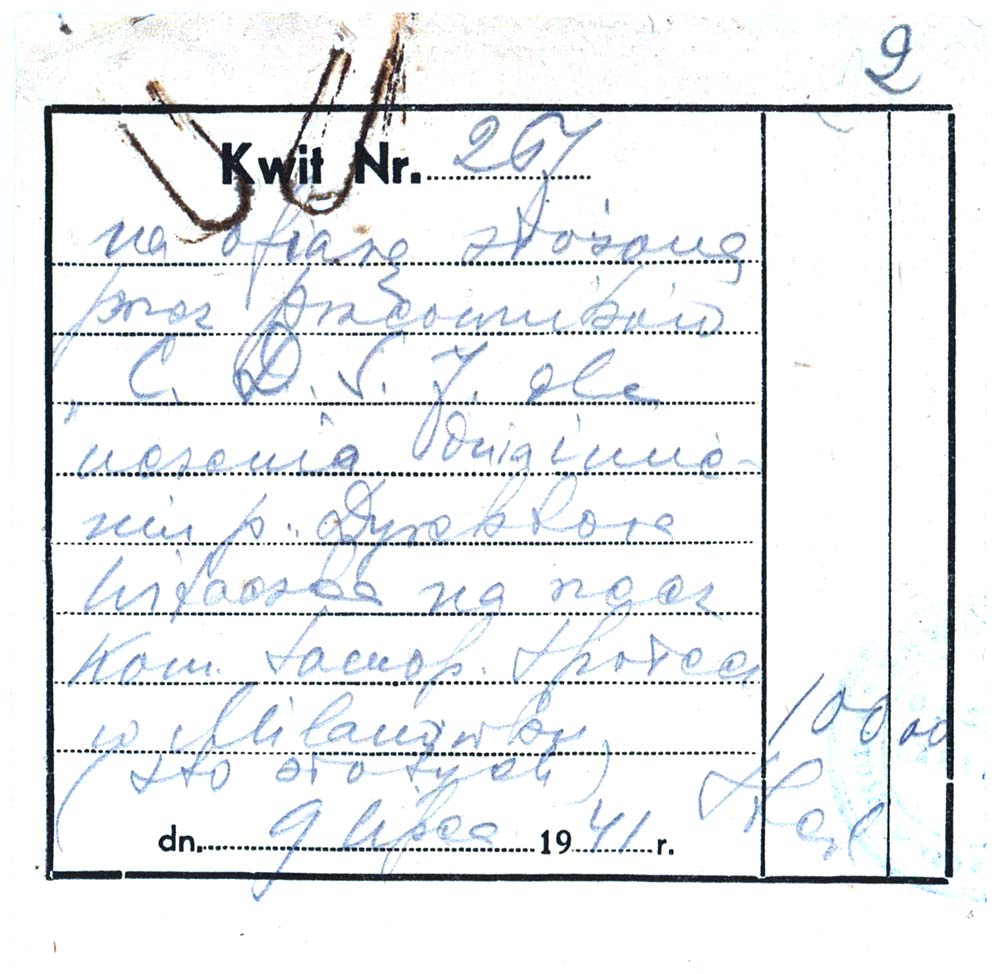 2
Kwit Nr. 267
na ofiarę złożoną
przez pracowników
C. D. S. J. dla
uczczenia Dnia imie-
nin p. Dyrektora
na rzecz
Kom. Samop. Społecz
w Milanówku 100 00
(sto złotych)
dn. 9 lipca 1941 r.